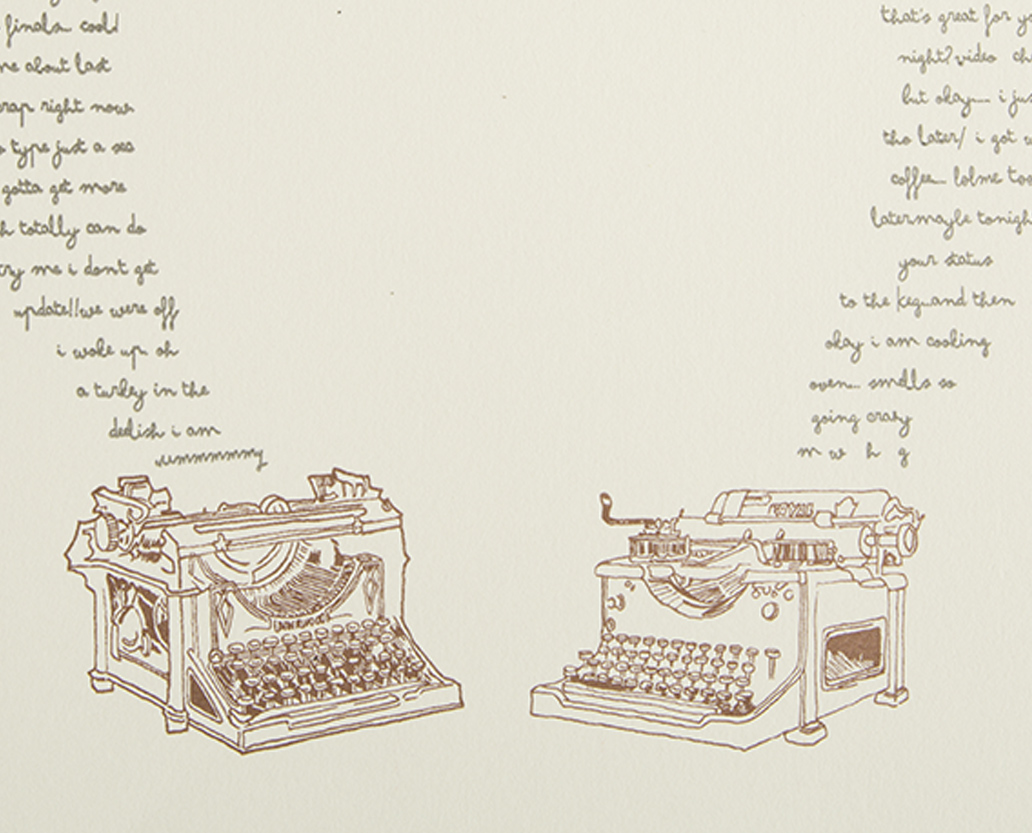 finals... cool!
me about last
crap right now.
to type just a sec
gotta get more
totally can do
try me i dont get
update!!we were off
i woke up oh
a turkey in the
deelish i am
ummmmmmy
that's great for yo
night?video ch
but okay.... i jus
tho later/ i got
coffee... lolme too
latermaybe tonigh
your status
to the keg...and then
okay i am cooking
oven... smells so
going crazy
m w h g